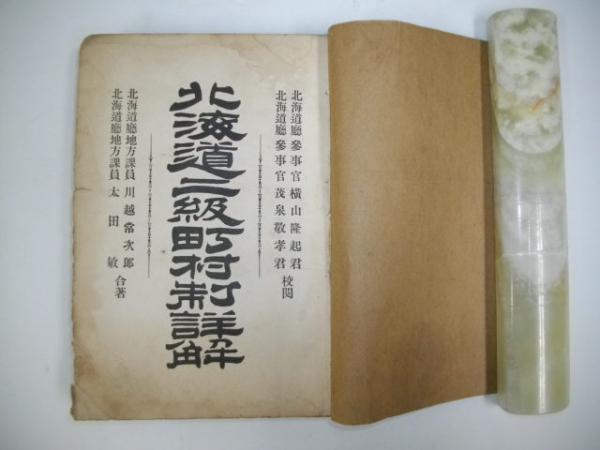 北海道廳參事官橫山隆起君
北海道廳參事官茂泉敬孝君
校閱
北海道二級町村制詳解
北海道廳地方課員川越常次郎
北海道廳地方課員太田敏
合著